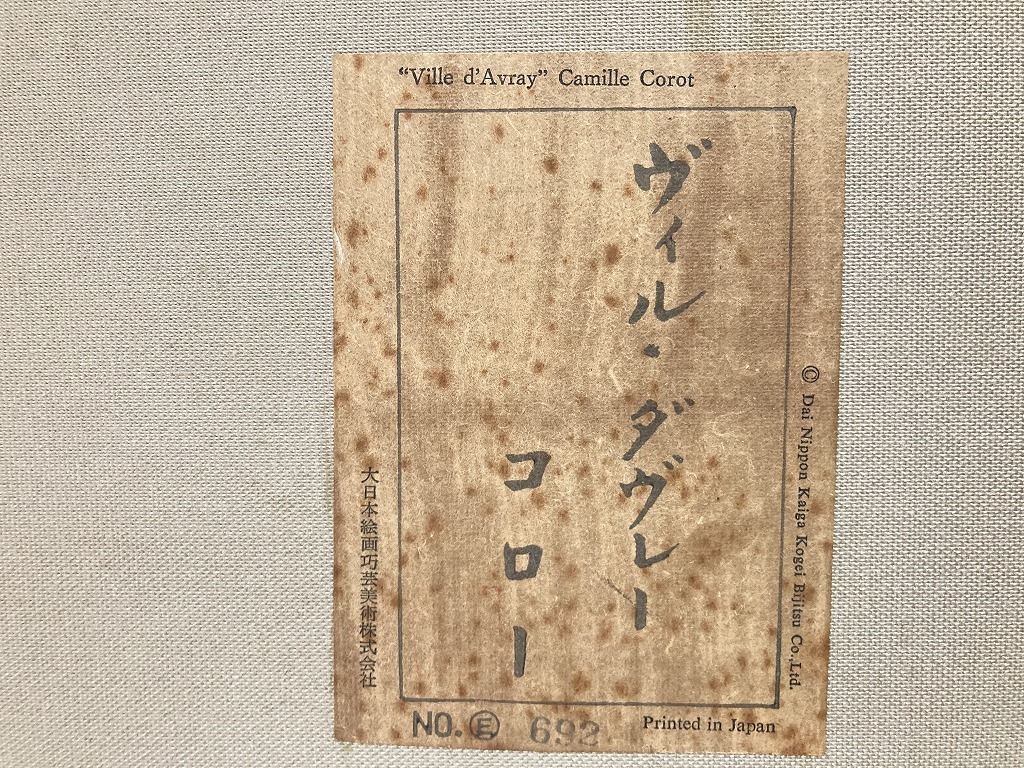 “Ville d’Avray” Camille Corot
ヴィル・ダヴレー
コロー
© Dai Nippon Kaiga Kogei Bijitsu Co.,Ltd.
大日本絵画巧芸美術株式会社
NO. Ⓔ 692
Printed in Japan